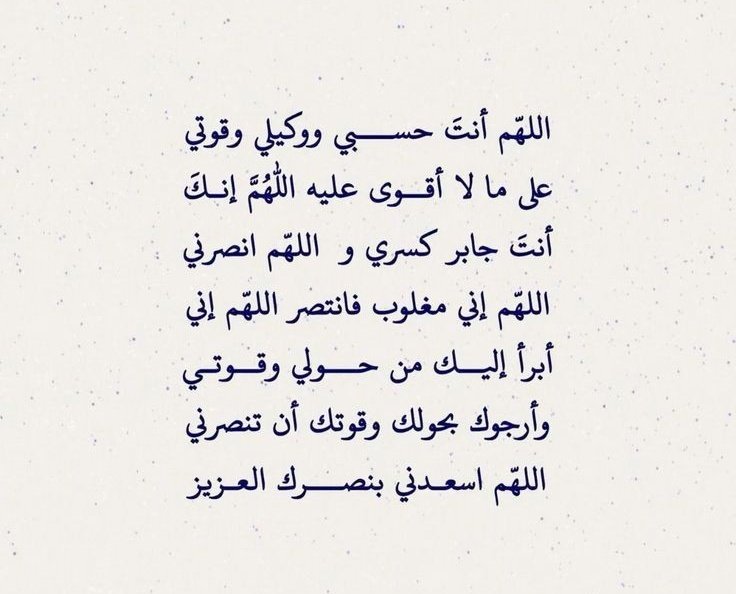 اللهّم أنتَ حسبي ووكيلي وقوتي
على ما لا أقوى عليه اللهُمَّ إنكَ
أنتَ جابر كسري و اللهّم انصرني
اللهّم إني مغلوب فانتصر اللهّم إني
أبرأ إليك من حولي وقوتي
وأرجوك بحولك وقوتك أن تنصرني
اللهّم اسعدني بنصرك العزيز